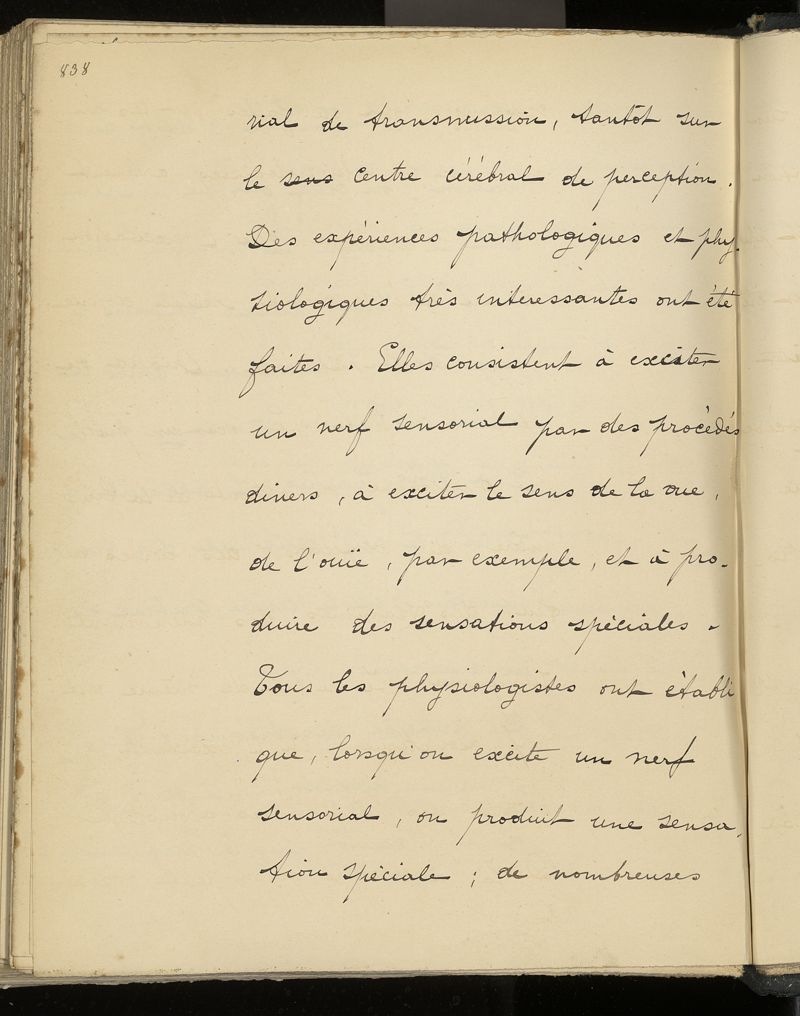 838
rial de transmission, tantôt sur
le sens centre cérébral de perception.
Des expériences pathologiques et phy-
siologiques très interessantes ont été
faites. Elles consistent à exciter
un nerf sensorial par des procédés
divers, à exciter le sens de la vue,
de l'ouïe, par exemple, et à pro-
duire des sensations spéciales.
Tous les physiologistes ont établi
que, lorsqu'on excite un nerf
sensorial, on produit une sensa-
tion spéciale ; de nombreuses